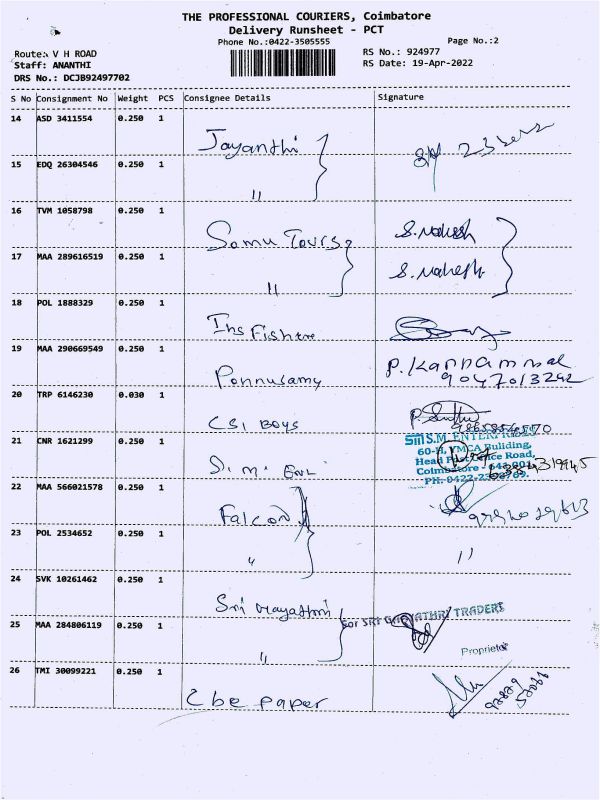 THE PROFESSIONAL COURIERS, Coimbatore
Delivery Runsheet - PCT
Phone No.:0422-3505555
Page No.:2
Route: V H ROAD
Staff: ANANTHI
DRS No.: DCJB92497702
RS No.: 924977
RS Date: 19-Apr-2022
S No Consignment No Weight PCS Consignee Details Signature
14 ASD 3411554 0.250 1 Jayanthi
15 EDQ 26304546 0.250 1 "
16 TVM 1058798 0.250 1 Somu Tours S. Mahesh
17 MAA 289616519 0.250 1 " S. Mahesh
18 POL 1888329 0.250 1
19 MAA 290669549 0.250 1 Ponnusamy P. Kannammal
9047013292
20 TRP 6146230 0.030 1 CSI BOYS
21 CNR 1621299 0.250 1 S.M. Ent
SM S.M. ENTERPRISES
60-H, YMCA Building,
Head Post Office Road,
Coimbatore - 641 001
PH: 0422-
22 MAA 566021578 0.250 1 Falcon
23 POL 2534652 0.250 1 " "
24 SVK 10261462 0.250 1 Sri Gayathri
For SRI GAYATHRI TRADERS
25 MAA 284806119 0.250 1 "
Proprietor
26 TMI 30099221 0.250 1 Cbe paper